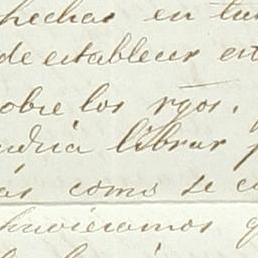 hechas en tu
de establecer est
sobre los rgos.
udria librar p
as como se c
huvieramos q